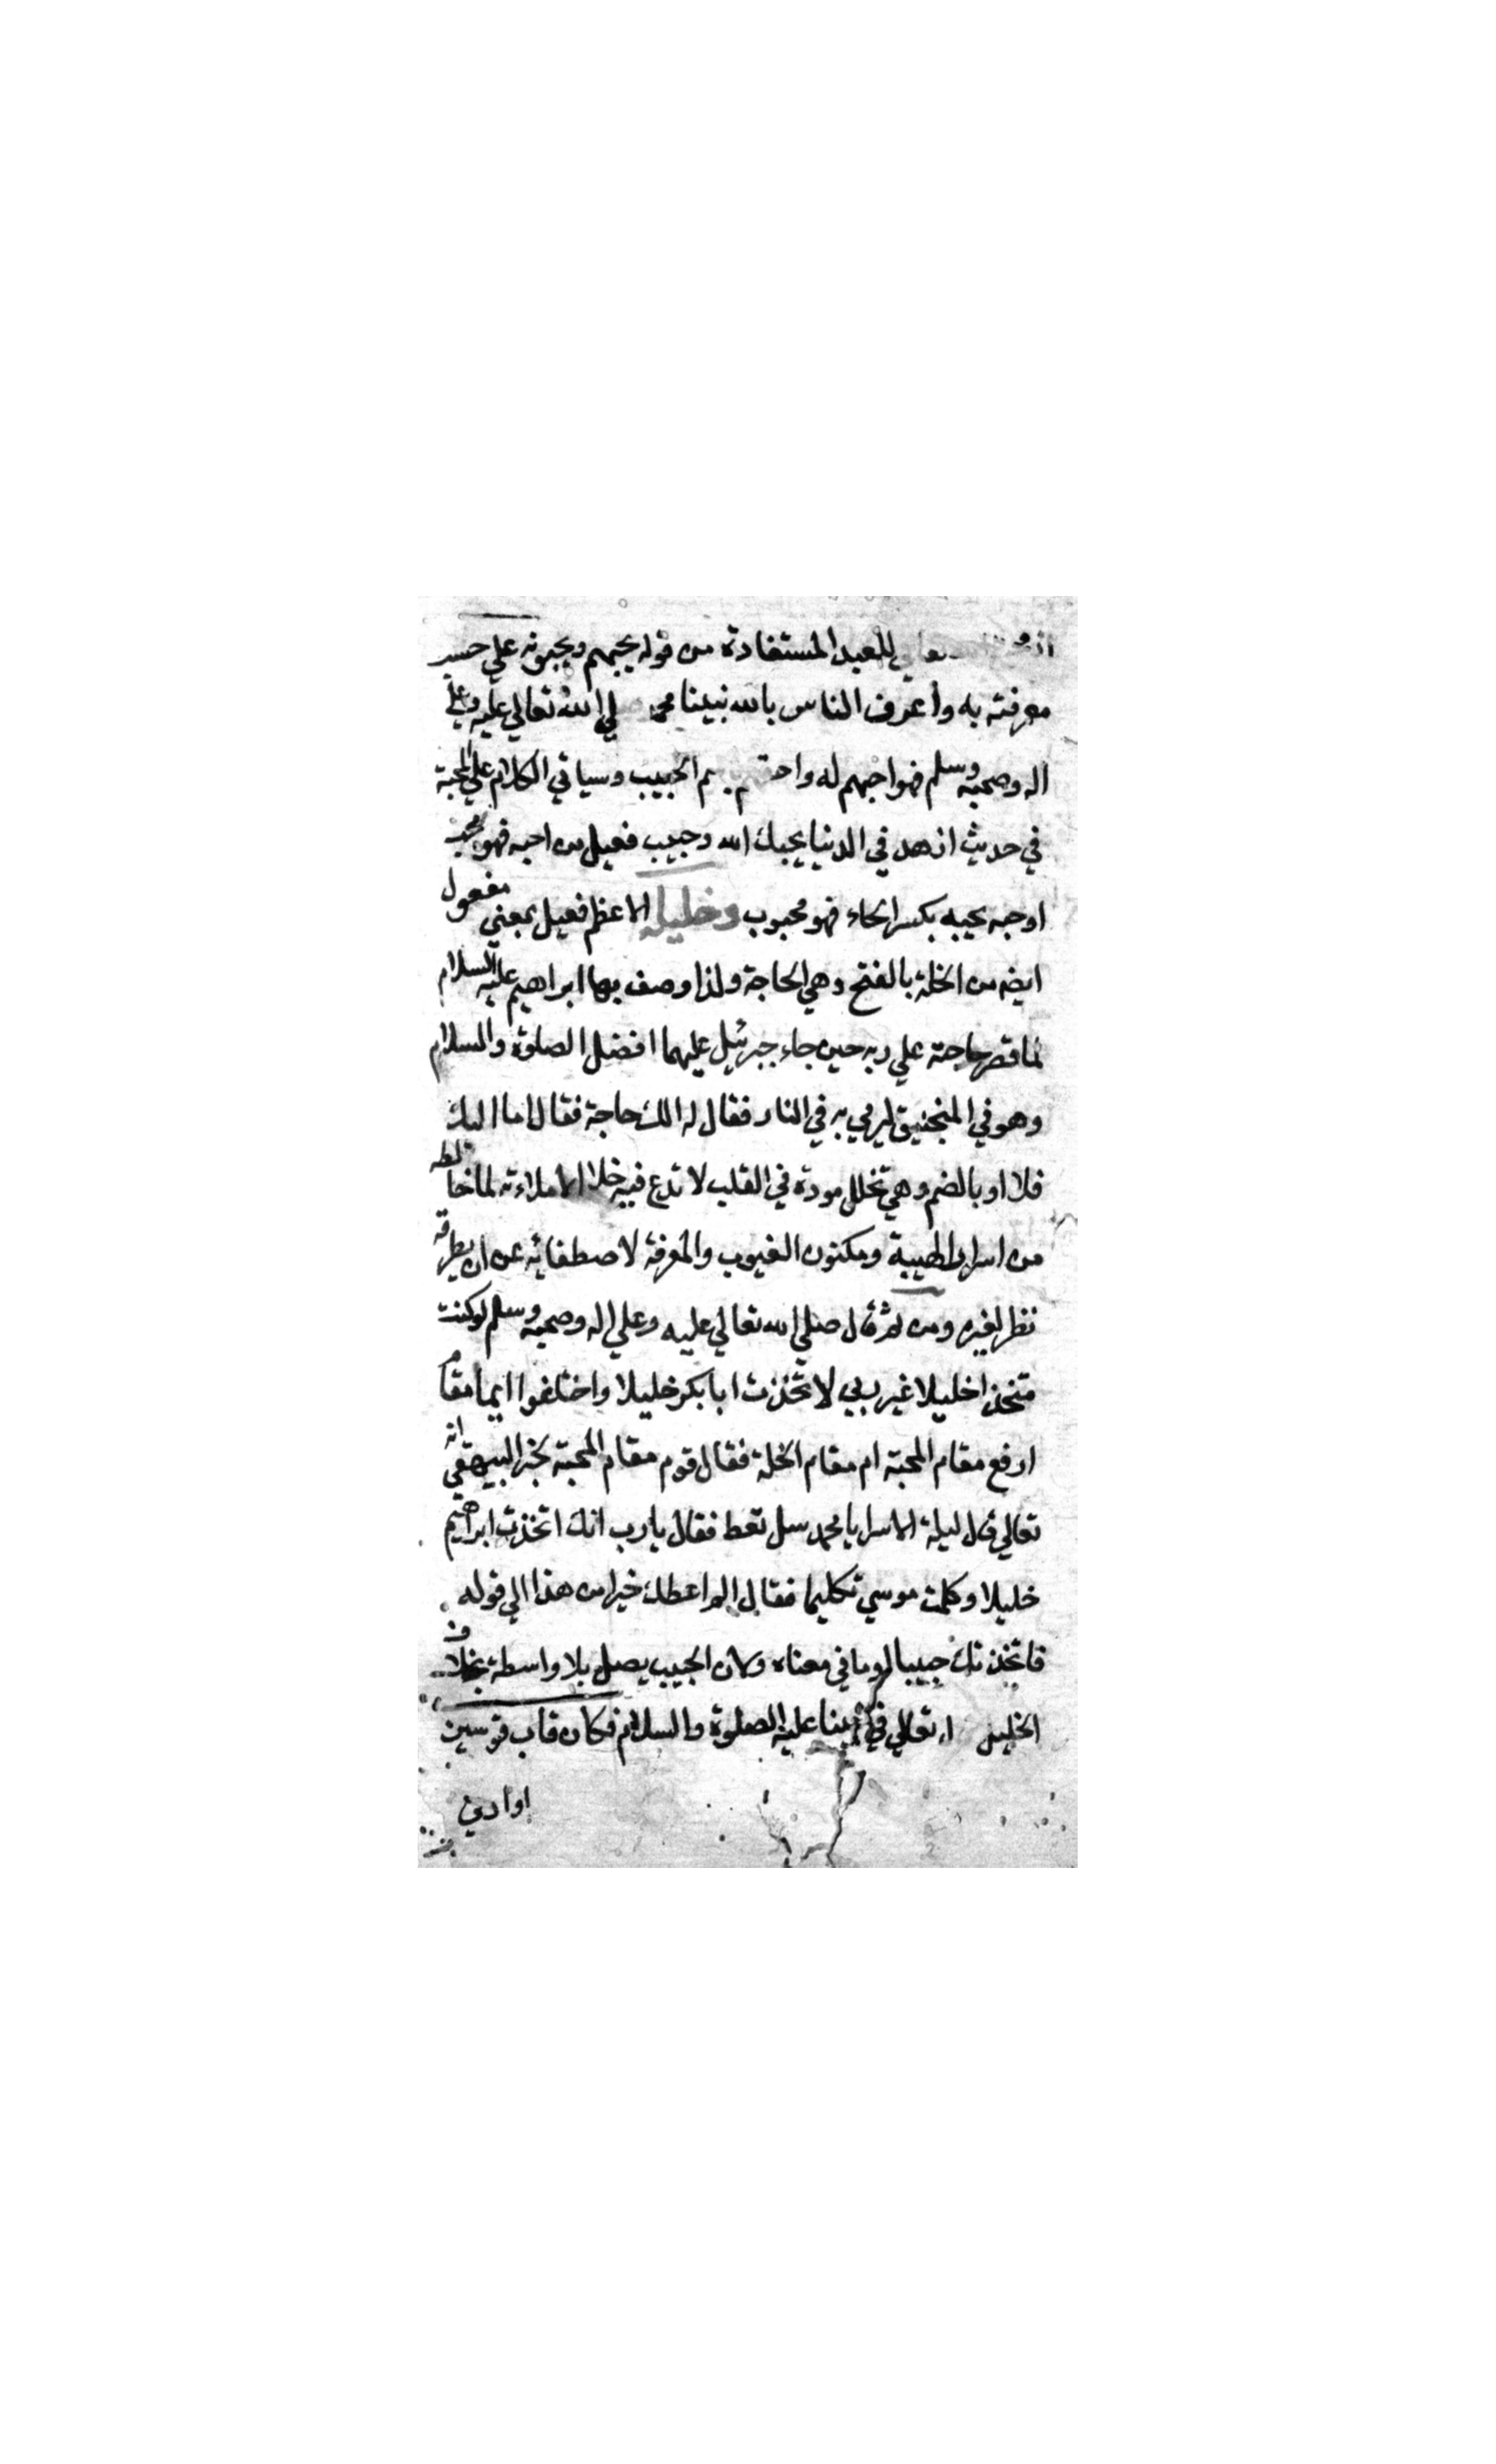 تعالي للعبد المستفادة من قوله يحبهم ويحبونه علي حسب
معرفته به وأعرف الناس بالله نبينا محمد صلي الله تعالي عليه وعلي
اله وصحبه وسلم فهو احبهم له واحقهم باسم الحبيب وسياتي الكلام علي المحبة
في حديث ازهد في الدنيا يحبك الله وحبيب فعيل من احبه فهو محب
او حبه يحبه بكسر الحاء فهو محبوب وخليله الاعظم فعيل بمعني مفعول
ايضه من الخلة بالفتح وهي الحاجة ولذا وصف بها ابراهيم عليه السلام
لما قصر حاجته علي ربه حين جاء جبرئيل عليهما افضل الصلوة والسلام
وهو في المنجنيق ليرمي به في النار فقال له الك حاجة فقال اما اليك
فلا او بالضم وهي تخلل مودة في القلب لا تدع فيه خلا الا ملاءته لما خالطه
من اسرار الهيبة ومكنون الغيوب والمعرفة لاصطفائه عن ان يطرقه
نظر لغيره ومن ثم قال صلي الله تعالي عليه وعلي اله وصحبه وسلم لو كنت
متخذا خليلا غير ربي لاتخذت ابا بكر خليلا واختلفوا ايما مقام
ارفع مقام المحبة ام مقام الخلة فقال قوم مقام المحبة لخبر البيهقي انه
تعالي قال ليلة الاسرا يا محمد سل تعط فقال يا رب انك اتخذت ابراهيم
خليلا وكلمت موسي تكليما فقال الم اعطك خيرا من هذا الي قوله
فاتخذتك حبيبا او ما في معناه ولان الحبيب يصل بلا واسطة بخلاف
الخليل تعالي في نبينا عليه الصلوة والسلام فكان قاب قوسين
او ادني